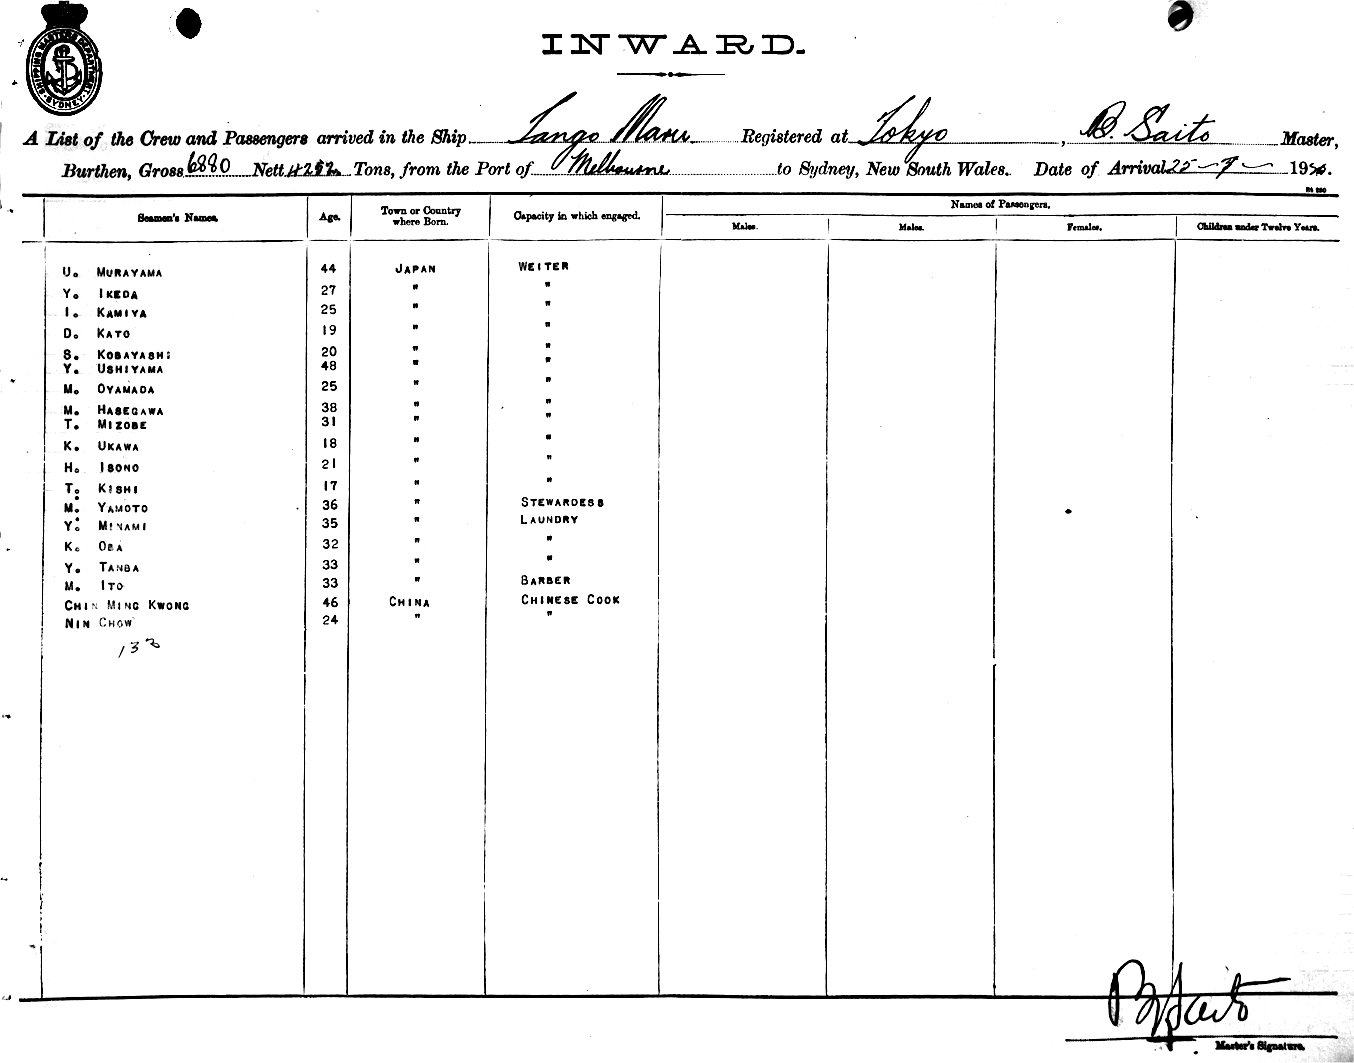 SHIPPING MASTERS DEPARTMENT
SYDNEY
INWARD.
A List of the Crew and Passengers arrived in the Ship Tango Maru Registered at Tokyo, B. Saito Master,
Burthen, Gross 6880 Nett Tons, from the Port of Melbourne to Sydney, New South Wales. Date of Arrival 25-9- 19
Names of Passengers.
Seamen's Names. Age. Town or Country where Born. Capacity in which engaged. Males. Males. Females. Children under Twelve Years.
U. MURAYAMA 44 JAPAN WEITER
Y. IKEDA 27 " "
I. KAMIYA 25 " "
D. KATO 19 " "
S. KOBAYASHI 20 " "
Y. USHIYAMA 48 " "
M. OYAMADA 25 " "
M. HASEGAWA 38 " "
T. MIZOBE 31 " "
K. UKAWA 18 " "
H. ISONO 21 " "
T. KISHI 17 " "
M. YAMOTO 36 " STEWARDESS
Y. MINAMI 35 " LAUNDRY
K. OBA 32 " "
Y. TANBA 33 " "
M. ITO 33 " BARBER
CHIN MING KWONG 46 CHINA CHINESE COOK
NIN CHOW 24 " "
133
B. Saito
Master's Signature.